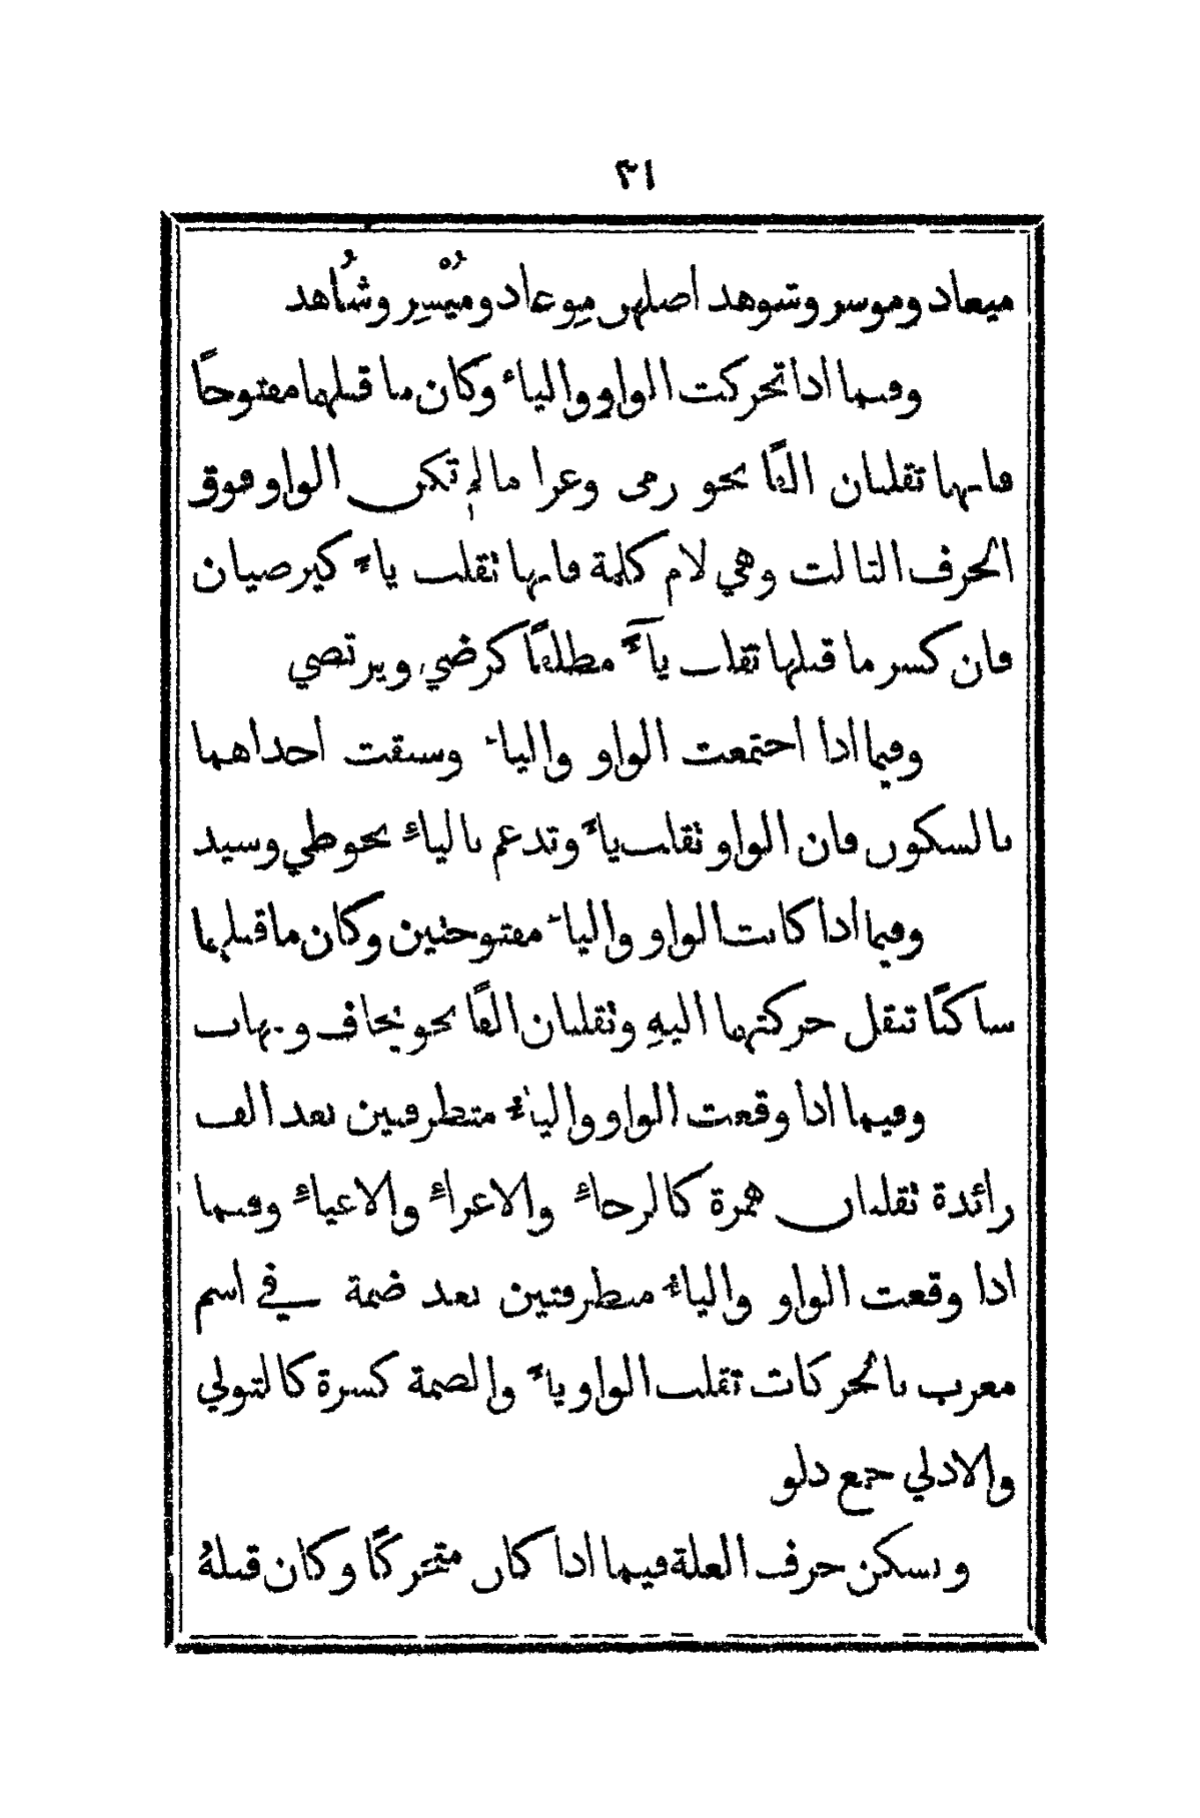 ٣١
ميعاد وموسر وشوهد اصلهن مِوعاد ومُيْسِر وشُاهد
وفيما اذا تحركت الواو والياء وكان ما قبلهما مفتوحًا
فانهما تقلبان الفًا نحو رمى وغزا ما لم تكن الواو فوق
الحرف الثالث وهي لام كلمة فانها تقلب ياءً كيرضيان
فان كسر ما قبلها تقلب يآءً مطلقًا كرضي ويرتضي
وفيما اذا اجتمعت الواو والياء وسبقت احداهما
بالسكون فان الواو تقلب ياءً وتدغم بالياءِ نحو طي وسيد
وفيما اذا كانت الواو والياء مفتوحتين وكان ما قبلهما
ساكنًا تنقل حركتهما اليهِ وتقلبان الفًا نحو يخاف ويهاب
وفيما اذا وقعت الواو والياءُ متطرفتين بعد الف
زائدة تقلبان همزة كالرجاءِ والاغراءِ والاعياءِ وفيما
اذا وقعت الواو والياءُ متطرفتين بعد ضمة في اسم
معرب بالحركات تقلب الواو ياءً والضمة كسرة كالتولي
والادلي جمع دلو
ويسكن حرف العلة فيما اذا كان متحركًا وكان قبلهُ